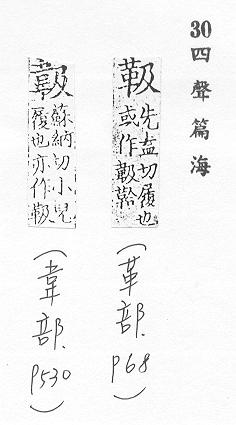 30 四聲篇海
靸
先盍切履也
或作
(革部. P68)
蘇納切小兒
履也亦作靸
(韋部. P530)